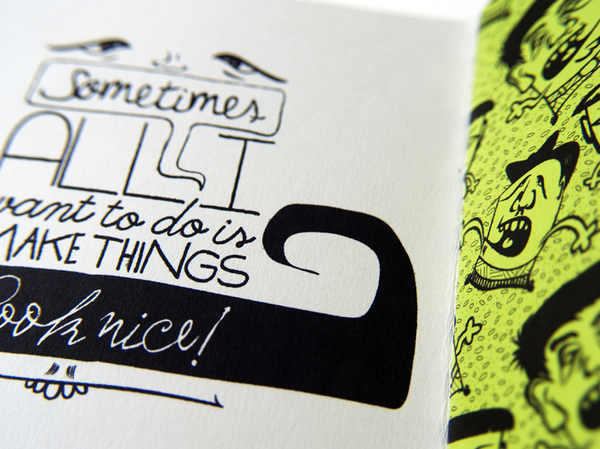 Sometimes
ALL I
want to do is
MAKE THINGS
look nice!